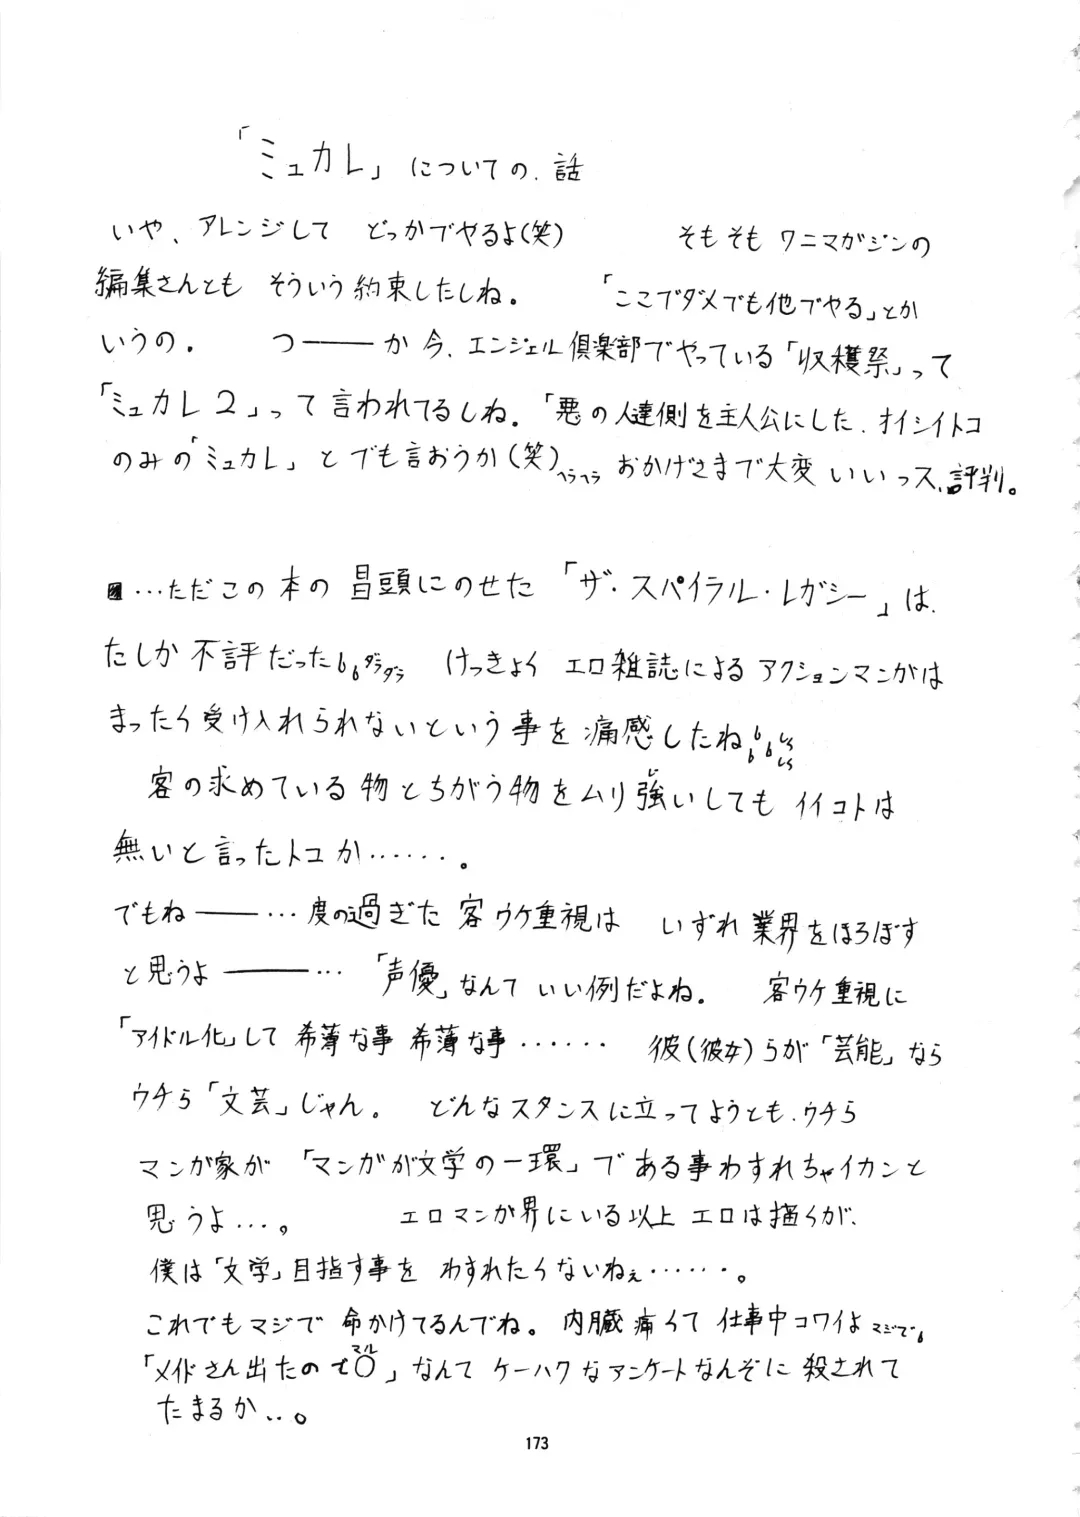 「ミュカレ」についての、話
いや、アレンジして どっかでやるよ(笑) そもそも ワニマガジンの
編集さんとも そういう約束したしね。 「ここでダメでも他でやる」とか
いうの。 つ――か 今、エンジェル倶楽部でやっている「収穫祭」って
「ミュカレ2」って言われてるしね。「悪の人達側を主人公にした、オイシイトコ
のみの「ミュカレ」とでも言おうか(笑)ヘラヘラ おかげさまで大変いいっス、評判。
…ただこの本の冒頭にのせた「ザ・スパイラル・レガシー」は、
たしか不評だったダラダラ けっきょく エロ雑誌によるアクションマンガは
まったく受け入れられないという事を痛感したね
客の求めている物とちがう物をムリ強いしても イイコトは
無いと言ったトコか……。
でもね――…度の過ぎた客ウケ重視は いずれ業界をほろぼす
と思うよ――…「声優」なんていい例だよね。 客ウケ重視に
「アイドル化」して 希薄な事 希薄な事…… 彼(彼女)らが「芸能」なら
ウチら「文芸」じゃん。 どんなスタンスに立ってようとも、ウチら
マンガ家が「マンガが文学の一環」である事わすれちゃイカンと
思うよ…。 エロマンガ界にいる以上エロは描くが、
僕は「文学」目指す事を わすれたくないねぇ……。
これでもマジで 命かけてるんでね。内臓痛くて仕事中コワイよマジで。
「メイドさん出たので〇マル」なんて ケーハクなアンケートなんぞに 殺されて
たまるか…。
173